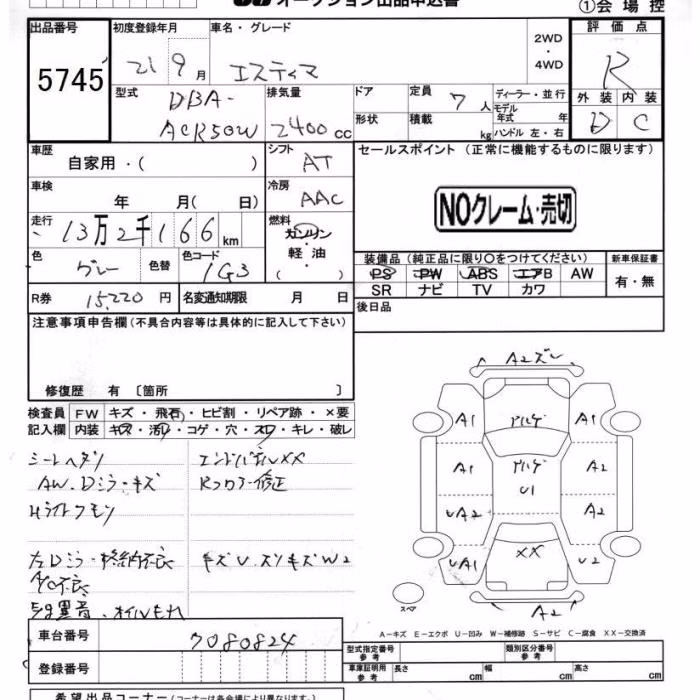 オークション出品申込書
①会場控
出品番号 初度登録年月 車名・グレード 評価点
5745 21 9月 エスティマ 2WD・4WD R
型式 排気量 ドア 定員 ディーラー・並行 外装 内装
DBA-ACR50W 2400cc 7人 モデル年式 年 D C
形状 積載 kg ハンドル 左・右
車歴 シフト セールスポイント (正常に機能するものに限ります)
自家用・( ) AT
車検 冷房
年 月( 日) AAC
NOクレーム・売切
走行 燃料
13万2千166km ガソリン・軽油・( )
色 色替 色コード 装備品(純正品に限り○をつけてください) 新車保証書
グレー 1G3 PS PW ABS エアB AW 有・無
SR ナビ TV カワ
R券 15,220円 名変通知期限 月 日 後日品
注意事項申告欄(不具合内容等は具体的に記入して下さい)
修復歴 有 〔箇所 〕
検査員 FW キズ・飛石・ヒビ割・リペア跡・×要
記入欄 内装 キズ・汚れ・コゲ・穴・スレ・キレ・破レ
シートヘタリ エンドパネルXX
AW.Dミラーキズ Rフロアー修正
Hライトクモリ
左Dミラー格納不良 キズU.スリキズW2
A/C不良
異音.オイルもれ
A2ズレ
A1 アルゲ A1
A1 アルゲ A2
U1
UA2 A2
UA1 XX U2
A2
スペア
A-キズ E-エクボ U-凹み W-補修跡 S-サビ C-腐食 XX-交換済
車台番号 7080824
型式指定番号参考 類別区分番号参考
登録番号
車庫証明用参考 長さ cm 幅 cm 高さ cm
希望出品コーナー(コーナーは各会場により異なります)